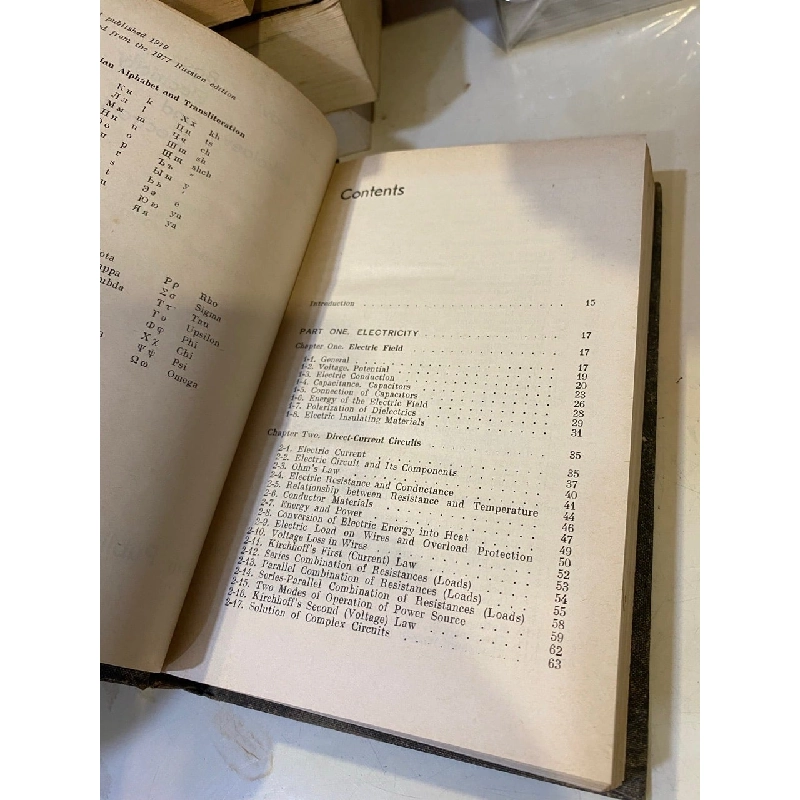 published 1979
from the 1977 Russian edition
Alphabet and Transliteration
Кк k
Лл l
Мм m
Нн n
Оо o
p
r
s
t
u
Хх kh
Цц ts
Чч ch
Шш sh
Щщ shch
Ъъ "
Ыы y
Ьь '
Ээ e
Юю yu
Яя ya
Ρρ Rho
Σσ Sigma
Ττ Tau
Υυ Upsilon
Φφ Phi
Χχ Chi
Ψψ Psi
Ωω Omega
Contents
Introduction 15
PART ONE. ELECTRICITY 17
Chapter One. Electric Field 17
1-1. General 17
1-2. Voltage, Potential 17
1-3. Electric Conduction 19
1-4. Capacitance. Capacitors 20
1-5. Connection of Capacitors 23
1-6. Energy of the Electric Field 26
1-7. Polarization of Dielectrics 28
1-8. Electric Insulating Materials 29
31
Chapter Two. Direct-Current Circuits 35
2-1. Electric Current 35
2-2. Electric Circuit and Its Components 37
2-3. Ohm's Law 40
2-4. Electric Resistance and Conductance 41
2-5. Relationship between Resistance and Temperature 44
2-6. Conductor Materials 46
2-7. Energy and Power 47
2-8. Conversion of Electric Energy into Heat 49
2-9. Electric Load on Wires and Overload Protection 50
2-10. Voltage Loss in Wires 52
2-11. Kirchhoff's First (Current) Law 53
2-12. Series Combination of Resistances (Loads) 54
2-13. Parallel Combination of Resistances (Loads) 55
2-14. Series-Parallel Combination of Resistances (Loads) 58
2-15. Two Modes of Operation of Power Source 59
2-16. Kirchhoff's Second (Voltage) Law 62
2-17. Solution of Complex Circuits 63